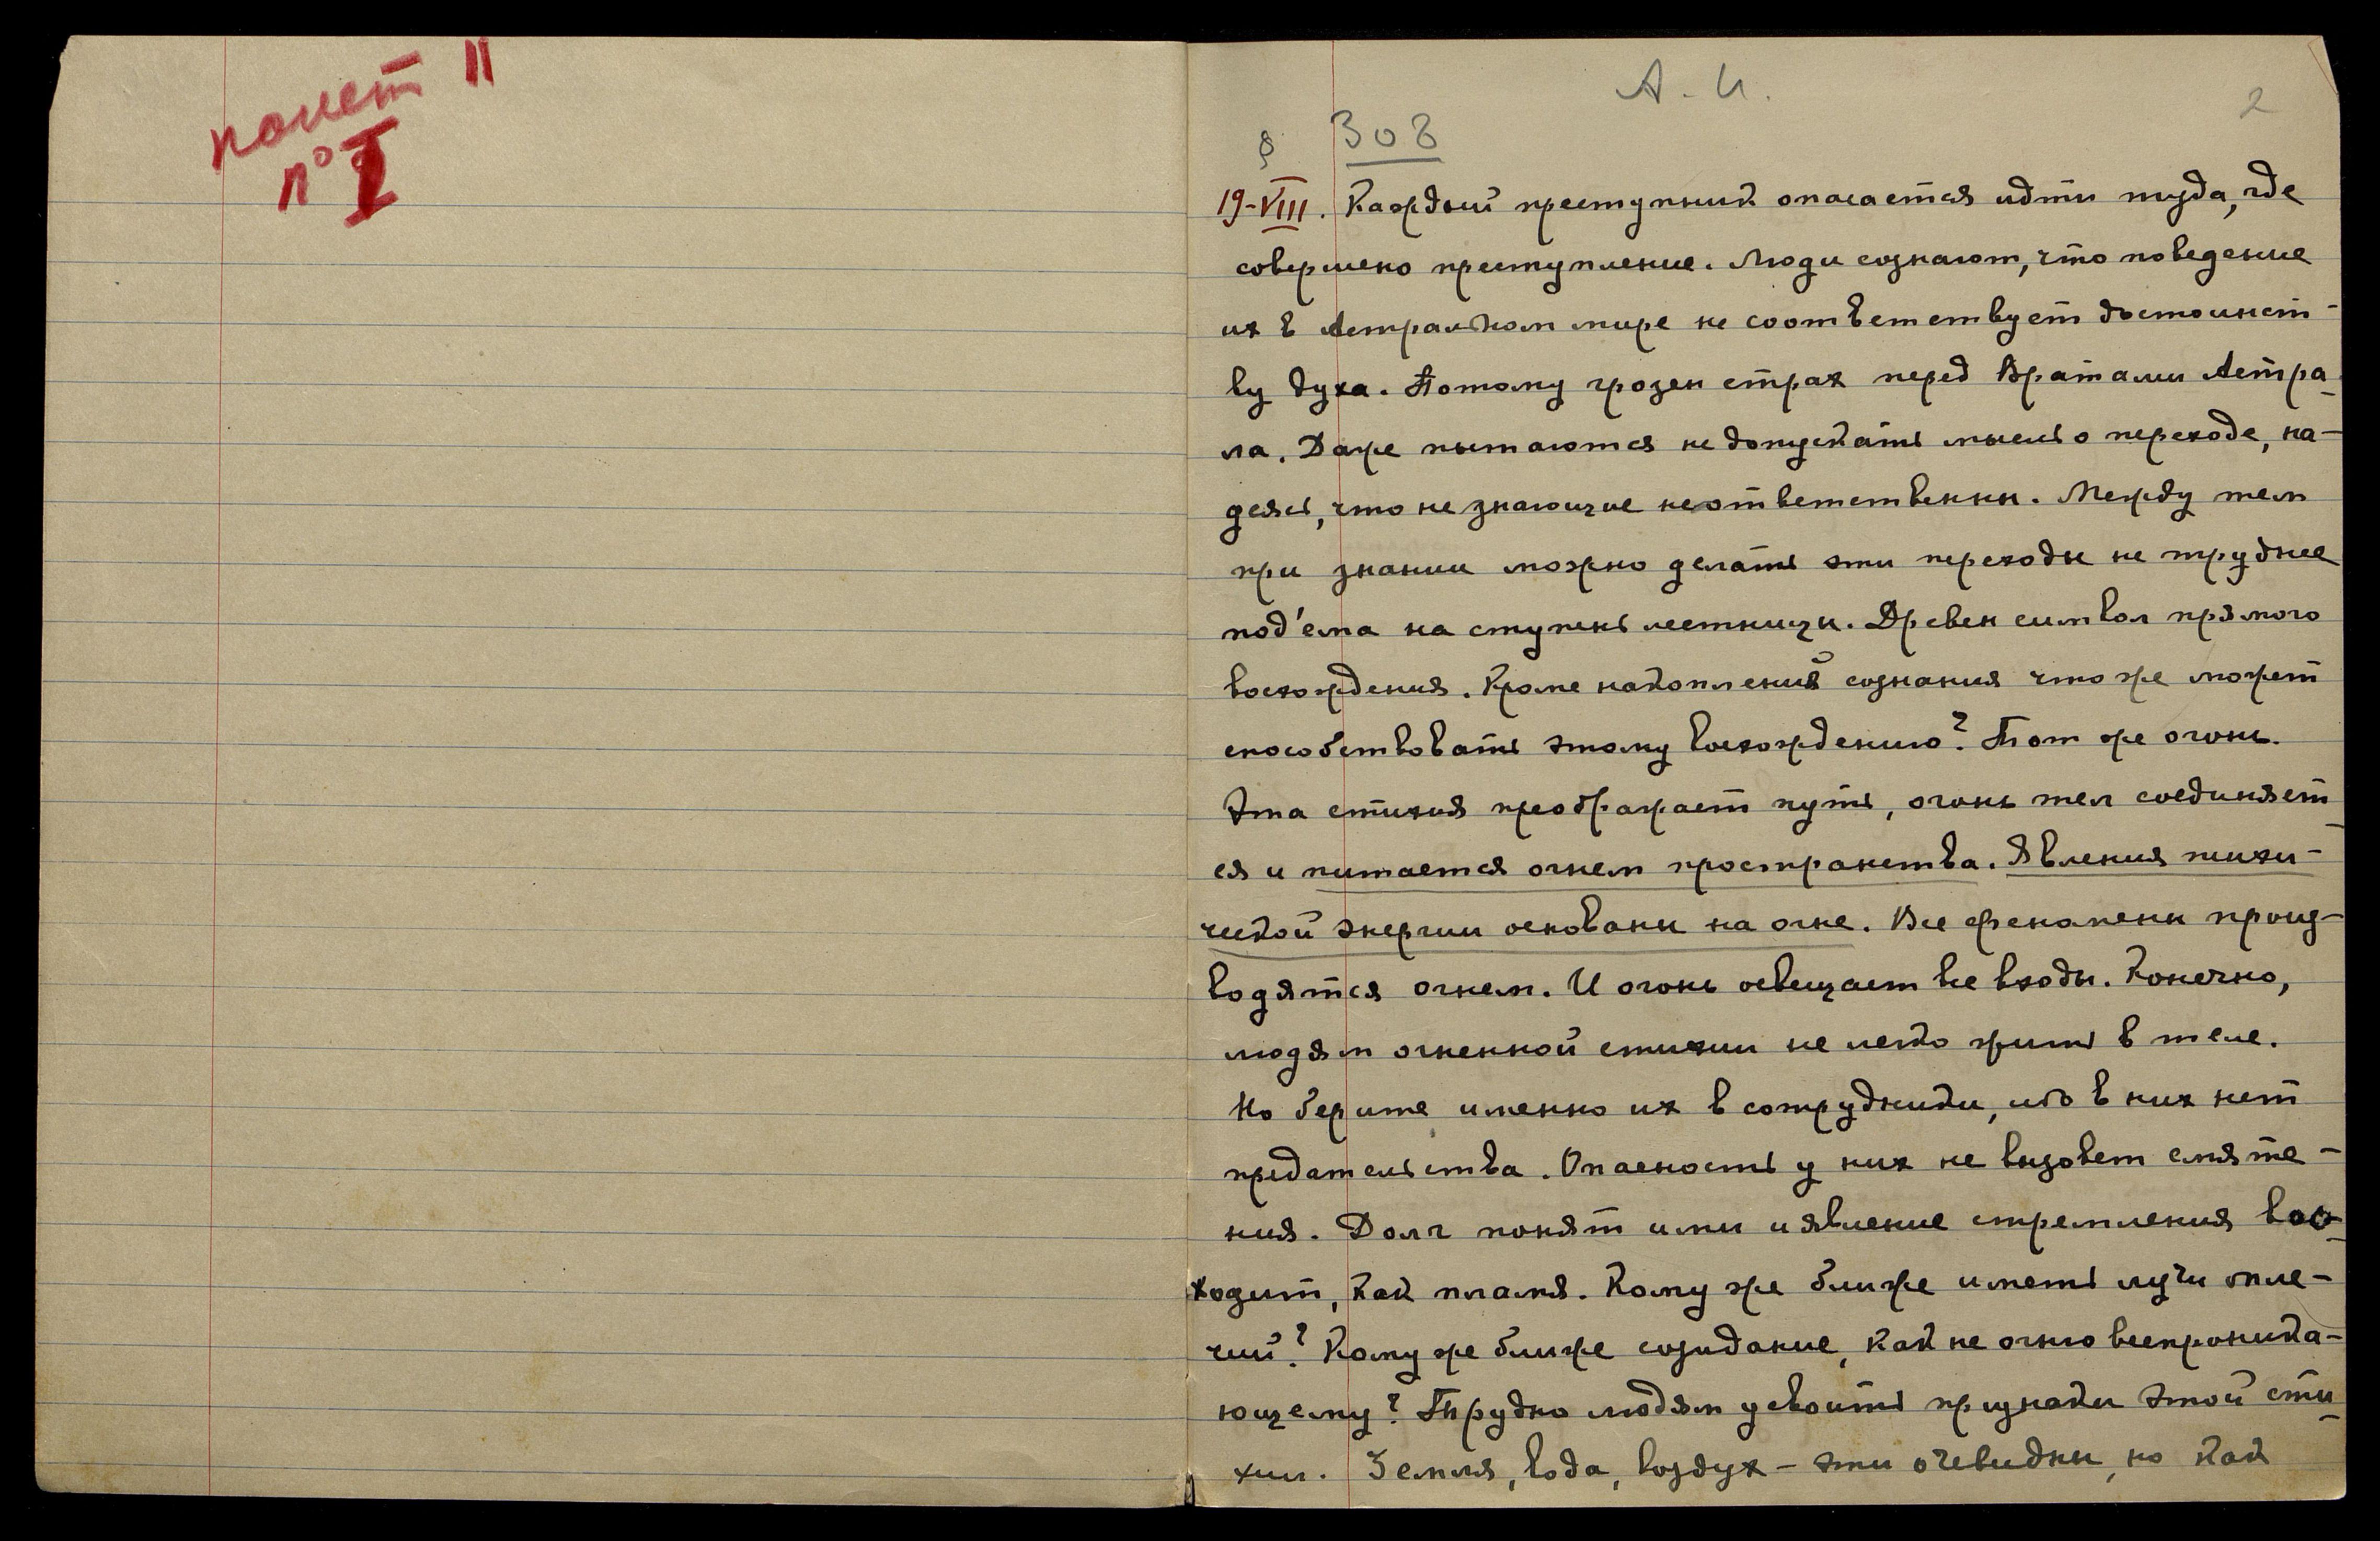 полет II
n° I
А. И.
2
§ 308
19-VIII. Каждый преступник опасается идти туда, где
совершено преступление. Люди сознают, что поведение
их в Астральном мире не соответствует достоинст-
ву духа. Потому грозен страх перед Вратами Астра-
ла. Даже пытаются не допускать мысль о переходе, на-
деясь, что не знающие неответственны. Между тем
при знании можно делать эти переходы не труднее
под'ема на ступень лестницы. Древен символ прямого
восхождения. Кроме накоплений сознания что же может
способствовать этому восхождению? Тот же огонь.
Эта стихия преображает путь, огонь тел соединяет-
ся и питается огнем пространства. Явления психи-
ческой энергии основаны на огне. Все феномены произ-
водятся огнем. И огонь освещает все входы. Конечно,
людям огненной стихии не легко жить в теле.
Но берите именно их в сотрудники, ибо в них нет
предательства. Опасность у них не вызовет смяте-
ния. Долг понят ими и явление стремления вос-
ходит, как пламя. Кому же ближе иметь лучи опле-
чий? Кому же ближе созидание, как не огню всепроника-
ющему? Трудно людям усвоить признаки этой сти-
хии. Земля, вода, воздух - эти очевидны, но как